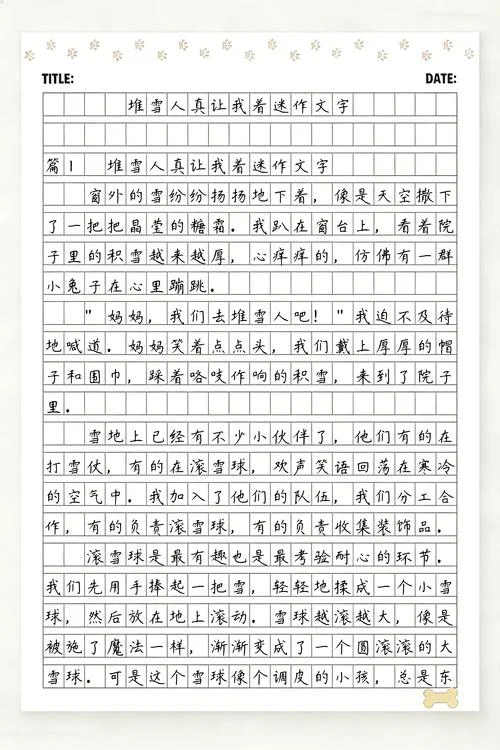 TITLE: DATE:
堆雪人真让我着迷作文字
篇1 堆雪人真让我着迷作文字
窗外的雪纷纷扬扬地下着，像是天空撒下
了一把把晶莹的糖霜。我趴在窗台上，看着院
子里的积雪越来越厚，心痒痒的，仿佛有一群
小兔子在心里蹦跳。
"妈妈，我们去堆雪人吧！"我迫不及待
地喊道。妈妈笑着点点头，我们戴上厚厚的帽
子和围巾，踩着咯吱作响的积雪，来到了院子
里。
雪地上已经有不少小伙伴了，他们有的在
打雪仗，有的在滚雪球，欢声笑语回荡在寒冷
的空气中。我加入了他们的队伍，我们分工合
作，有的负责滚雪球，有的负责收集装饰品。
滚雪球是最有趣也是最考验耐心的环节。
我们先用手捧起一把雪，轻轻地揉成一个小雪
球，然后放在地上滚动。雪球越滚越大，像是
被施了魔法一样，渐渐变成了一个圆滚滚的大
雪球。可是这个雪球像个调皮的小孩，总是东